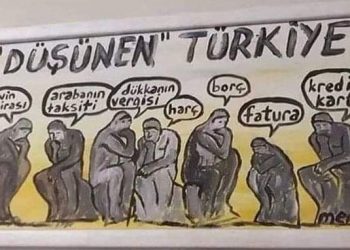 "DÜŞÜNEN" TÜRKİYE
vin
irası
arabanın
taksiti
dükkanın
vergisi
harç
borç
fatura
kredi
kart